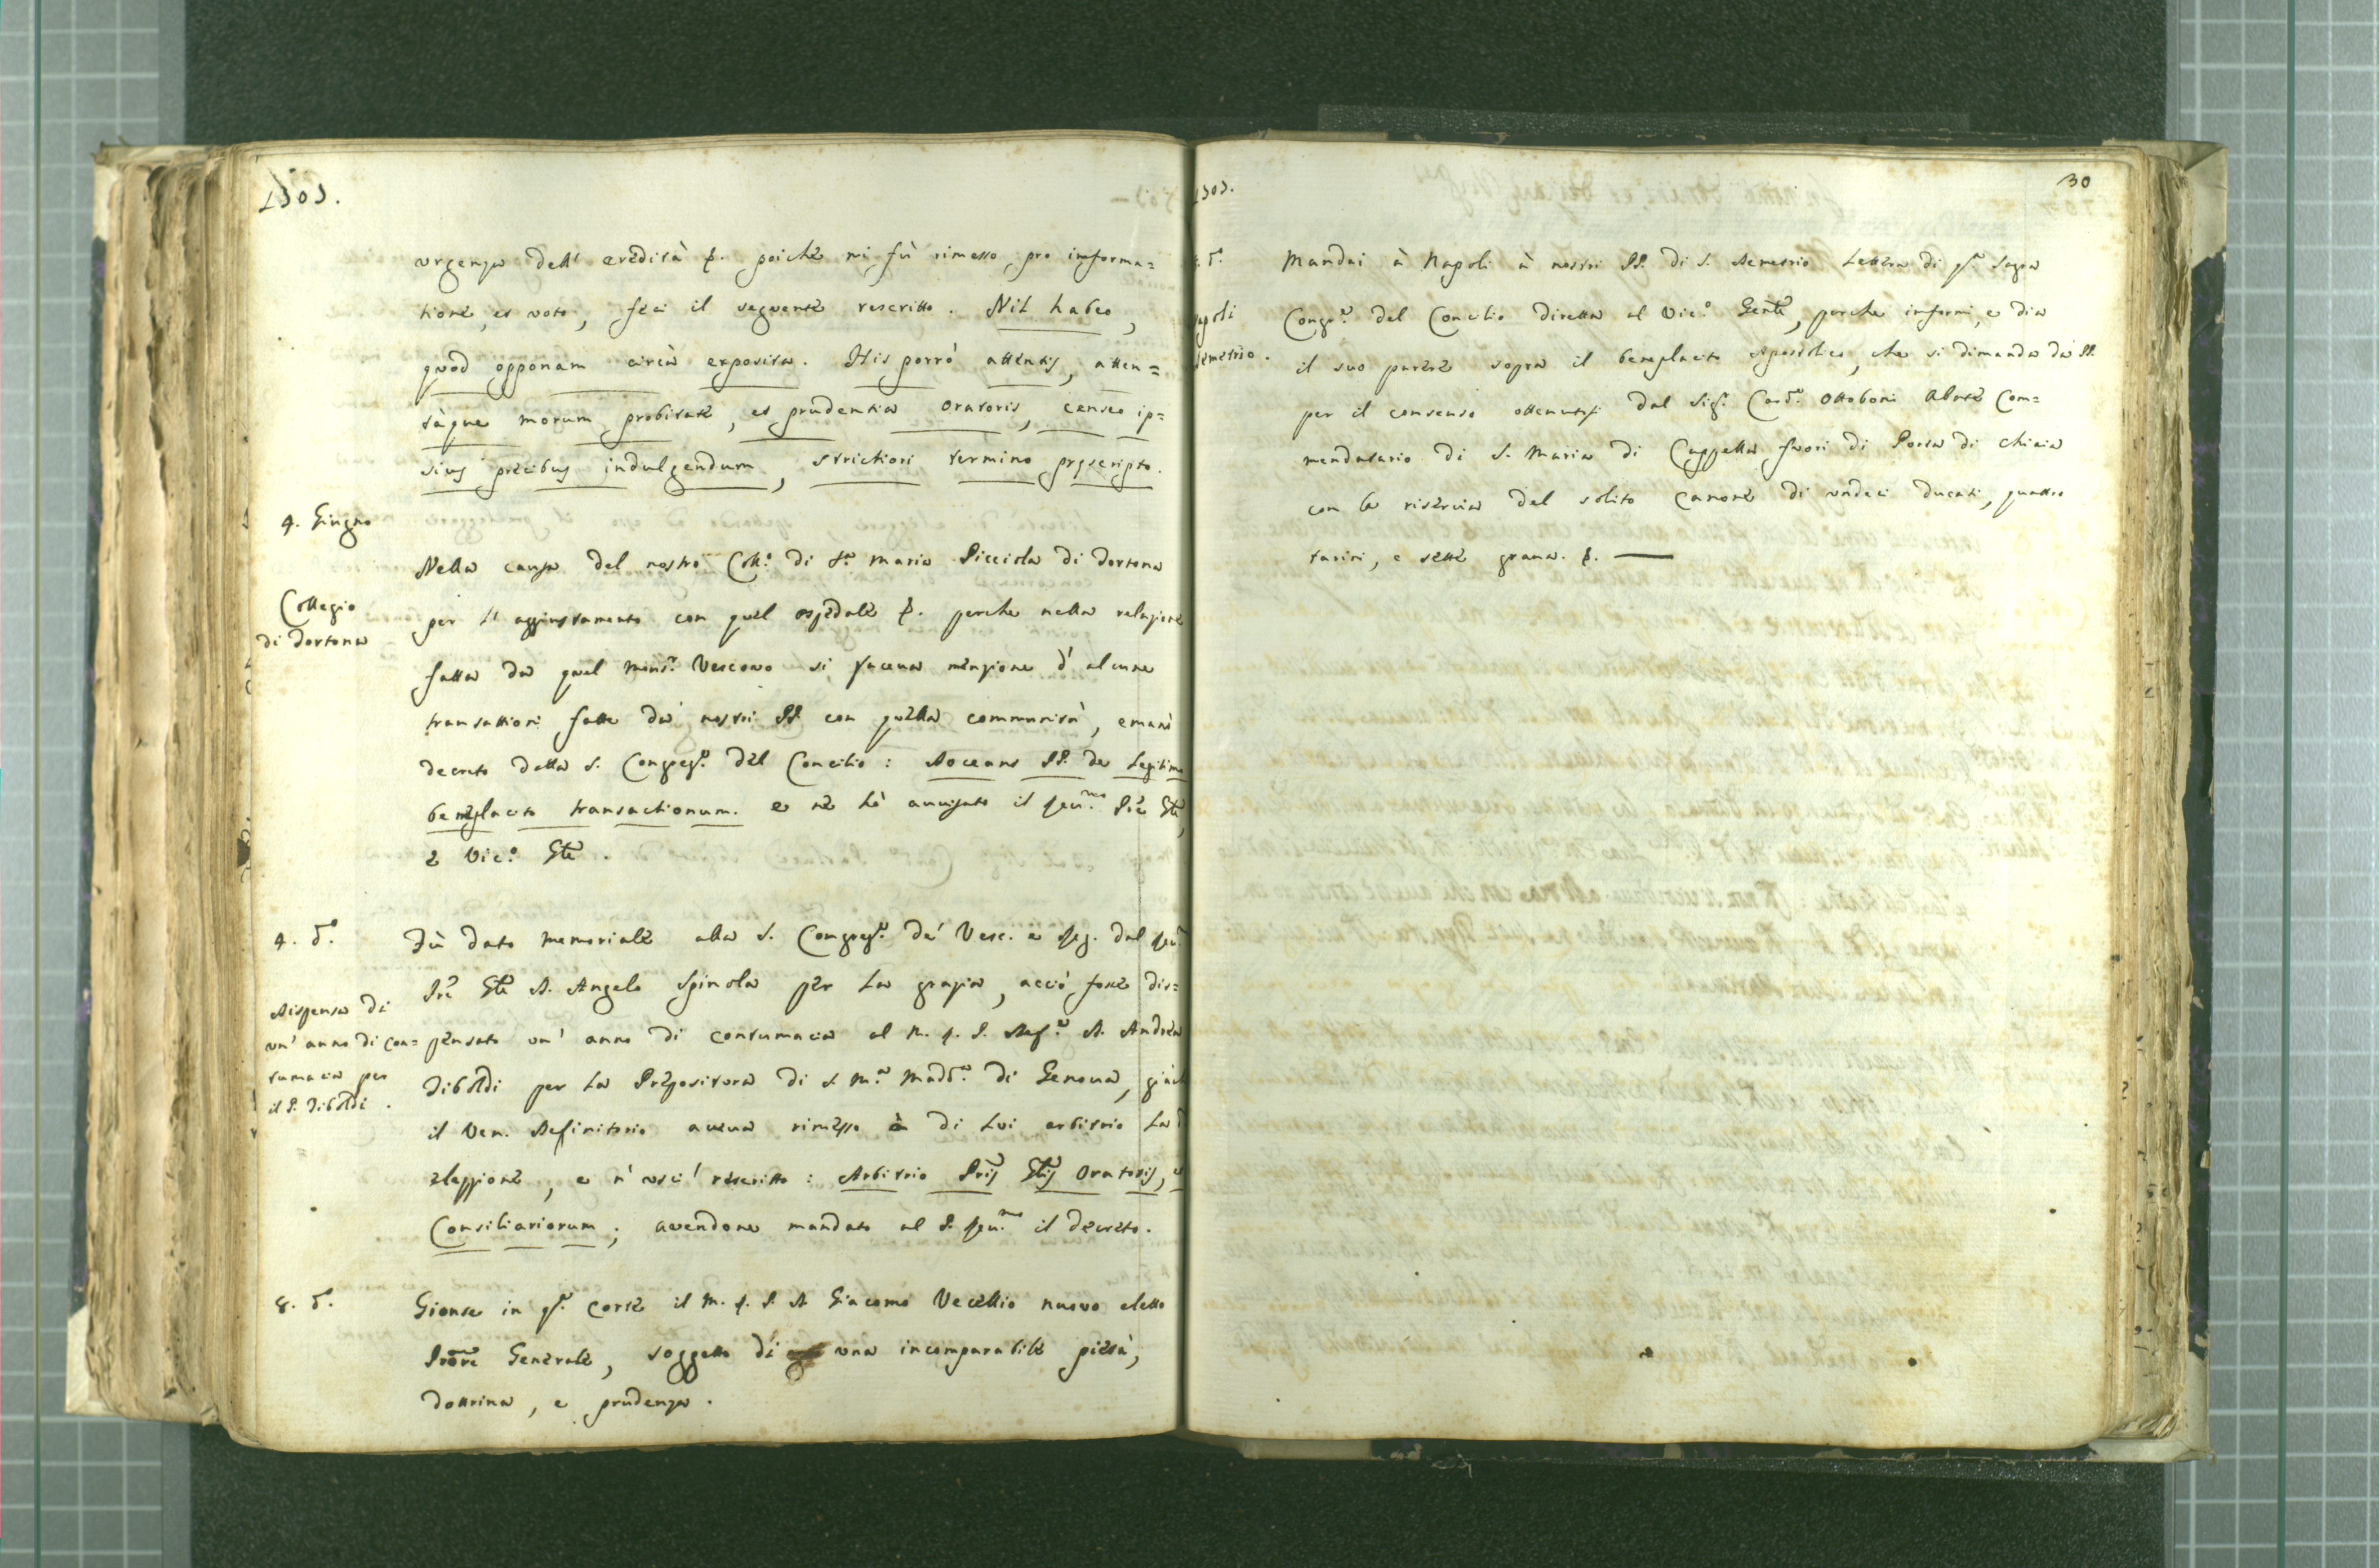 1703.
urgenza dell' eredità &. poiche mi fù rimesso pro informa=
tione, et voto, feci il seguente rescritto. Nil habeo,
quod opponam circà exposita. His porrò attentis, atten=
tàque morum probitate, et prudentia Oratoris, censeo ip=
sius precibus indulgendum, strictiori termino prescripto.
4. Giugno
Collegio
di Tortona
Nella causa del nostro Coll.º di S.ª Maria Picciola di Tortona
per l' aggiustamento con quel ospedale &. perche nella relazione
fatta da quel Mons.r Vescovo si faceva menzione d' alcune
transattioni fatte da' nostri PP. con quella communità, emanò
decreto della S. Congreg.ª del Concilio: Doceant PP. de legitimo
beneplacito transactionum. e ne hò avvisato il Rev.mo Pre Gle,
e Vic.º Gle.
4. d.º
Dispensa di
un' anno di con=
tumacia per
il P. Tiboldi.
Fù dato memoriale alla S. Congreg.ª de' Vesc. e Reg. dal Rev.
Pre Gle D. Angelo Spinola per la grazia, acciò fosse dis=
pensato un' anno di contumacia al M. R. P. D. Andrea
Tiboldi per la Prepositura di S. M.ª Madd.ª di Genova, già
il Ven. Definitorio aveva rimesso à di lui arbitrio la
elezzione, e n' uscì rescritto: Arbitrio Pris Glis Oratoris, et
Consiliariorum; avendone mandato al P. Rev.mo il decreto.
8. d.º
Gionse in q.ª Corte il M. R. P. D. Giacomo Vecellio nuovo eletto
Prore Generale, soggetto di una incomparabile pietà,
dottrina, e prudenza.
1703.
30
d.º
Napoli
Demetrio.
Mandai à Napoli à nostri PP. di S. Demetrio lettera di q.ª Sagra
Congr.ª del Concilio diretta al Vic.º Genle, perche informi, e dia
il suo parere sopra il beneplacito Apostolico, che si dimanda da' PP.
per il consenso ottenutosi dal Sig.r Card. Ottoboni Abate Com=
mendatario di S. Maria di Cappella fuori di Porta di Chiaia
con la riserva del solito canone di undeci ducati, quattro
tarini, e sette grana. &.